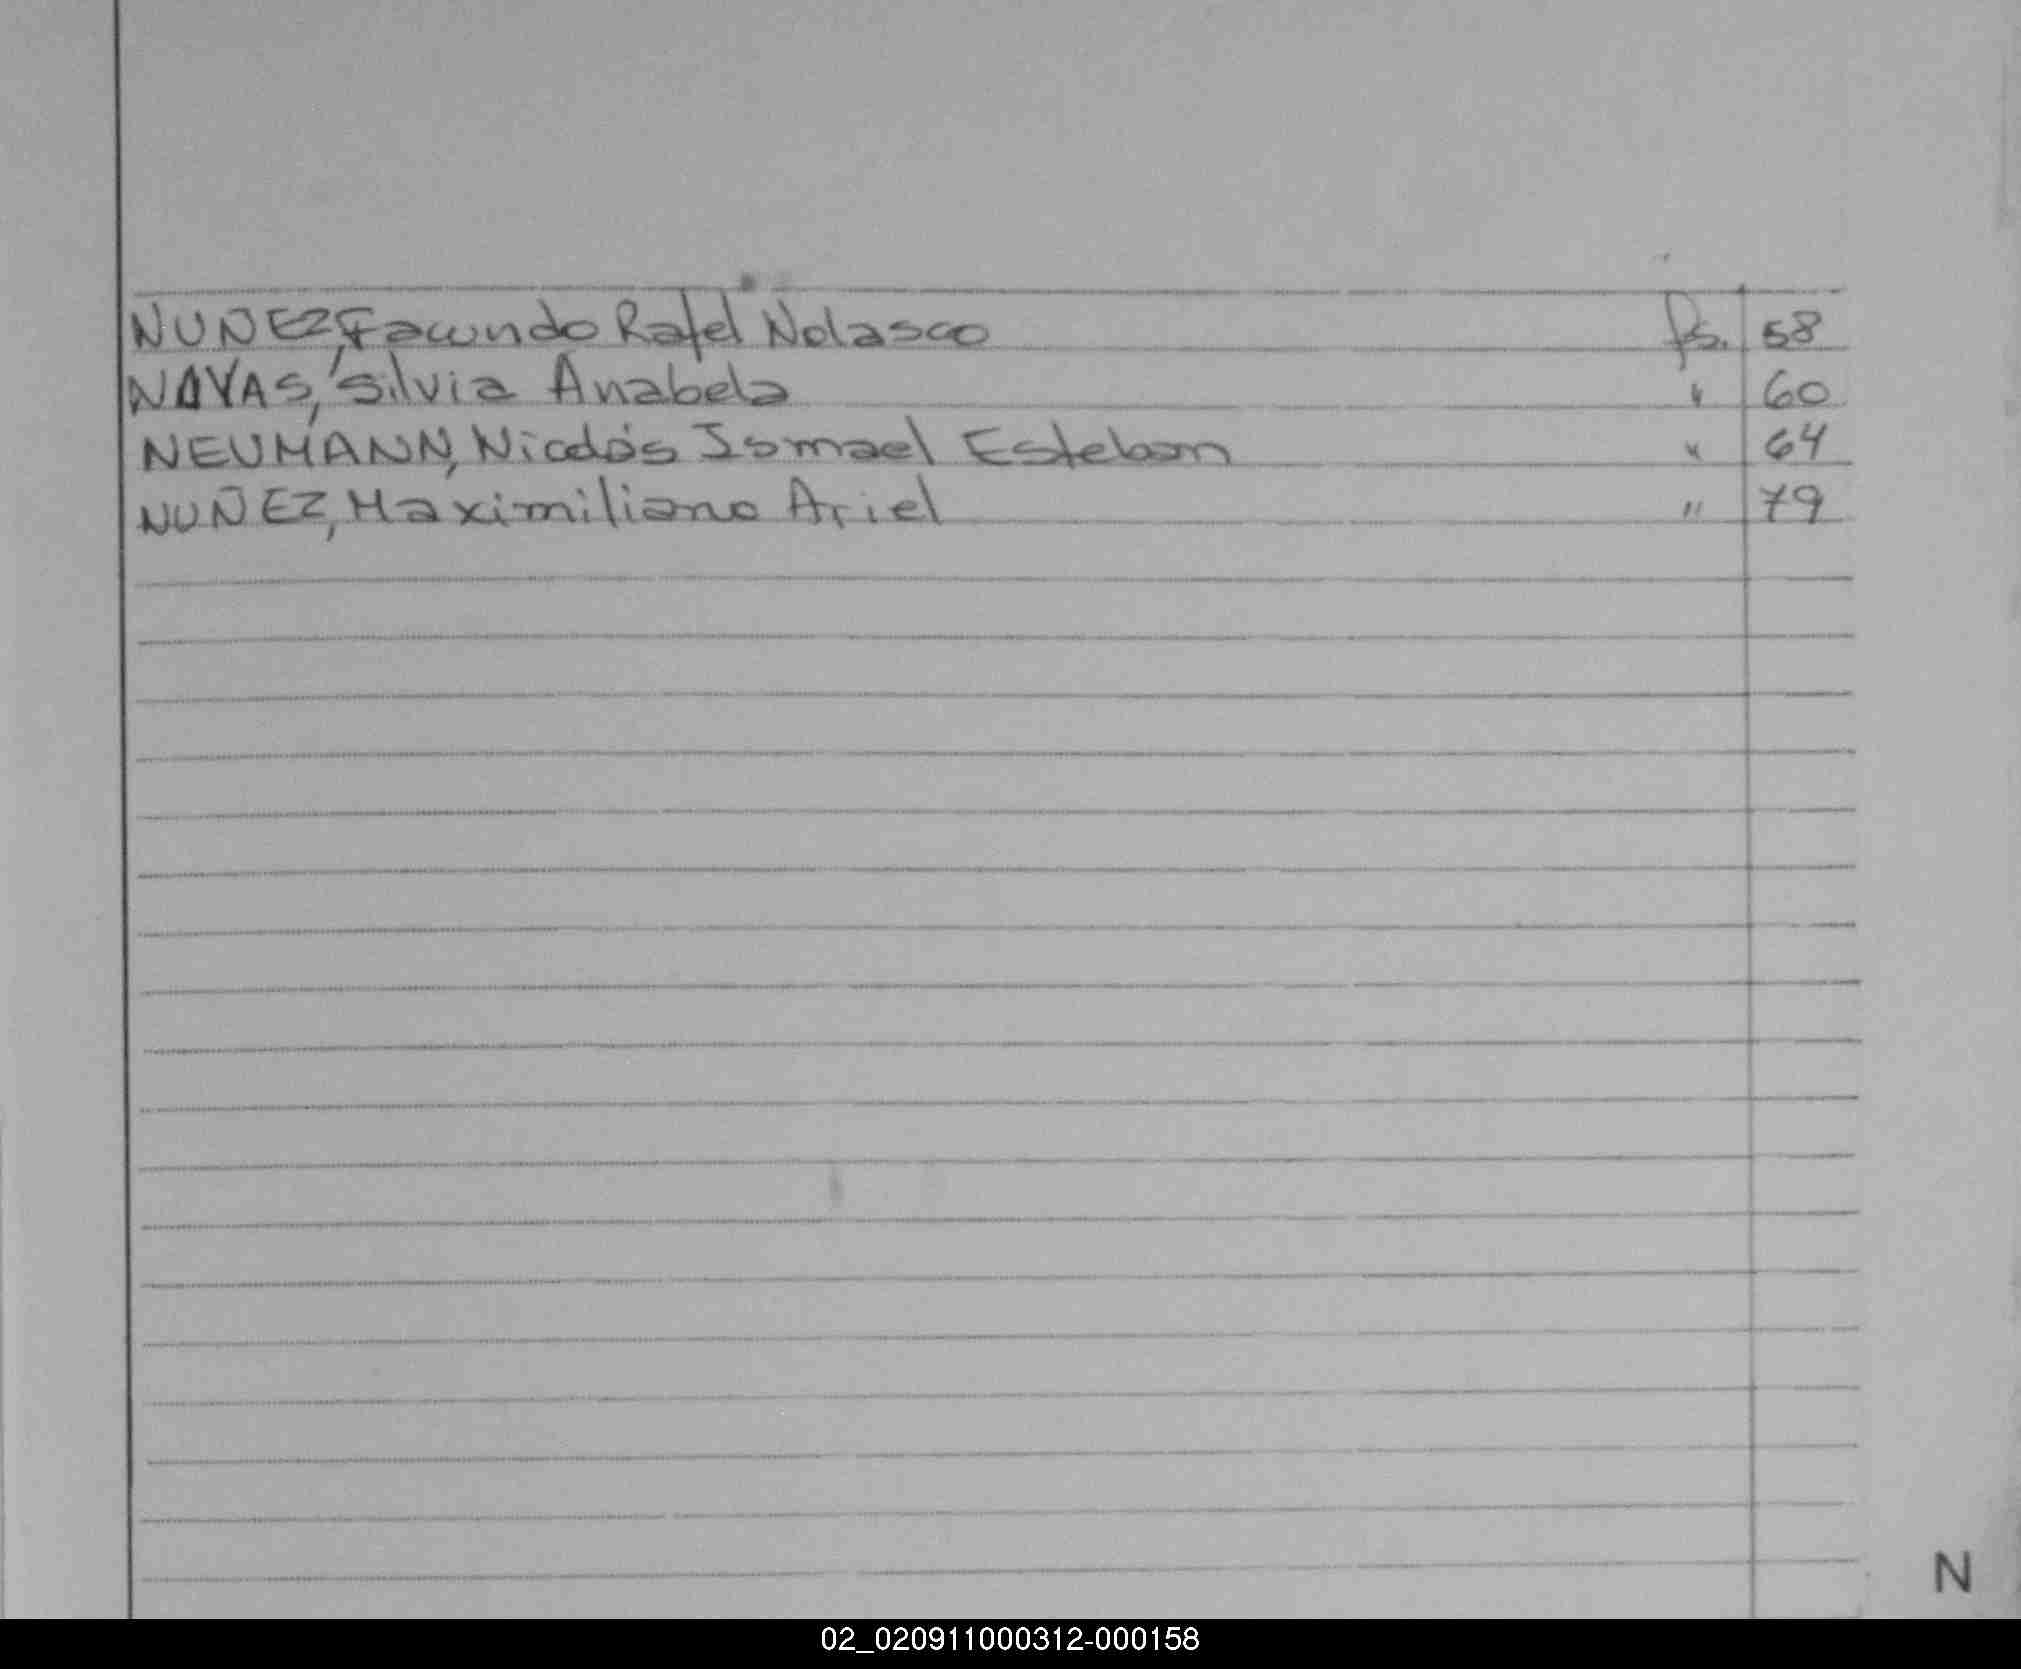 NUÑEZ, Facundo Rafel Nolasco fs. 58
NAVAS, Silvia Anabela " 60
NEUMANN, Nicolás Ismael Esteban " 64
NUÑEZ, Maximiliano Ariel " 79
N
02_020911000312-000158